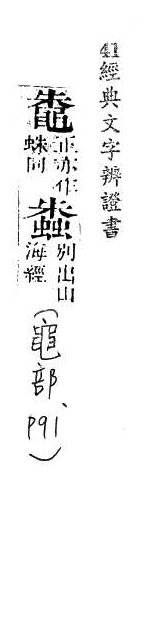 41經典文字辨證書
鼄正亦作
蛛同
別出山
海經
(黽部、p91)